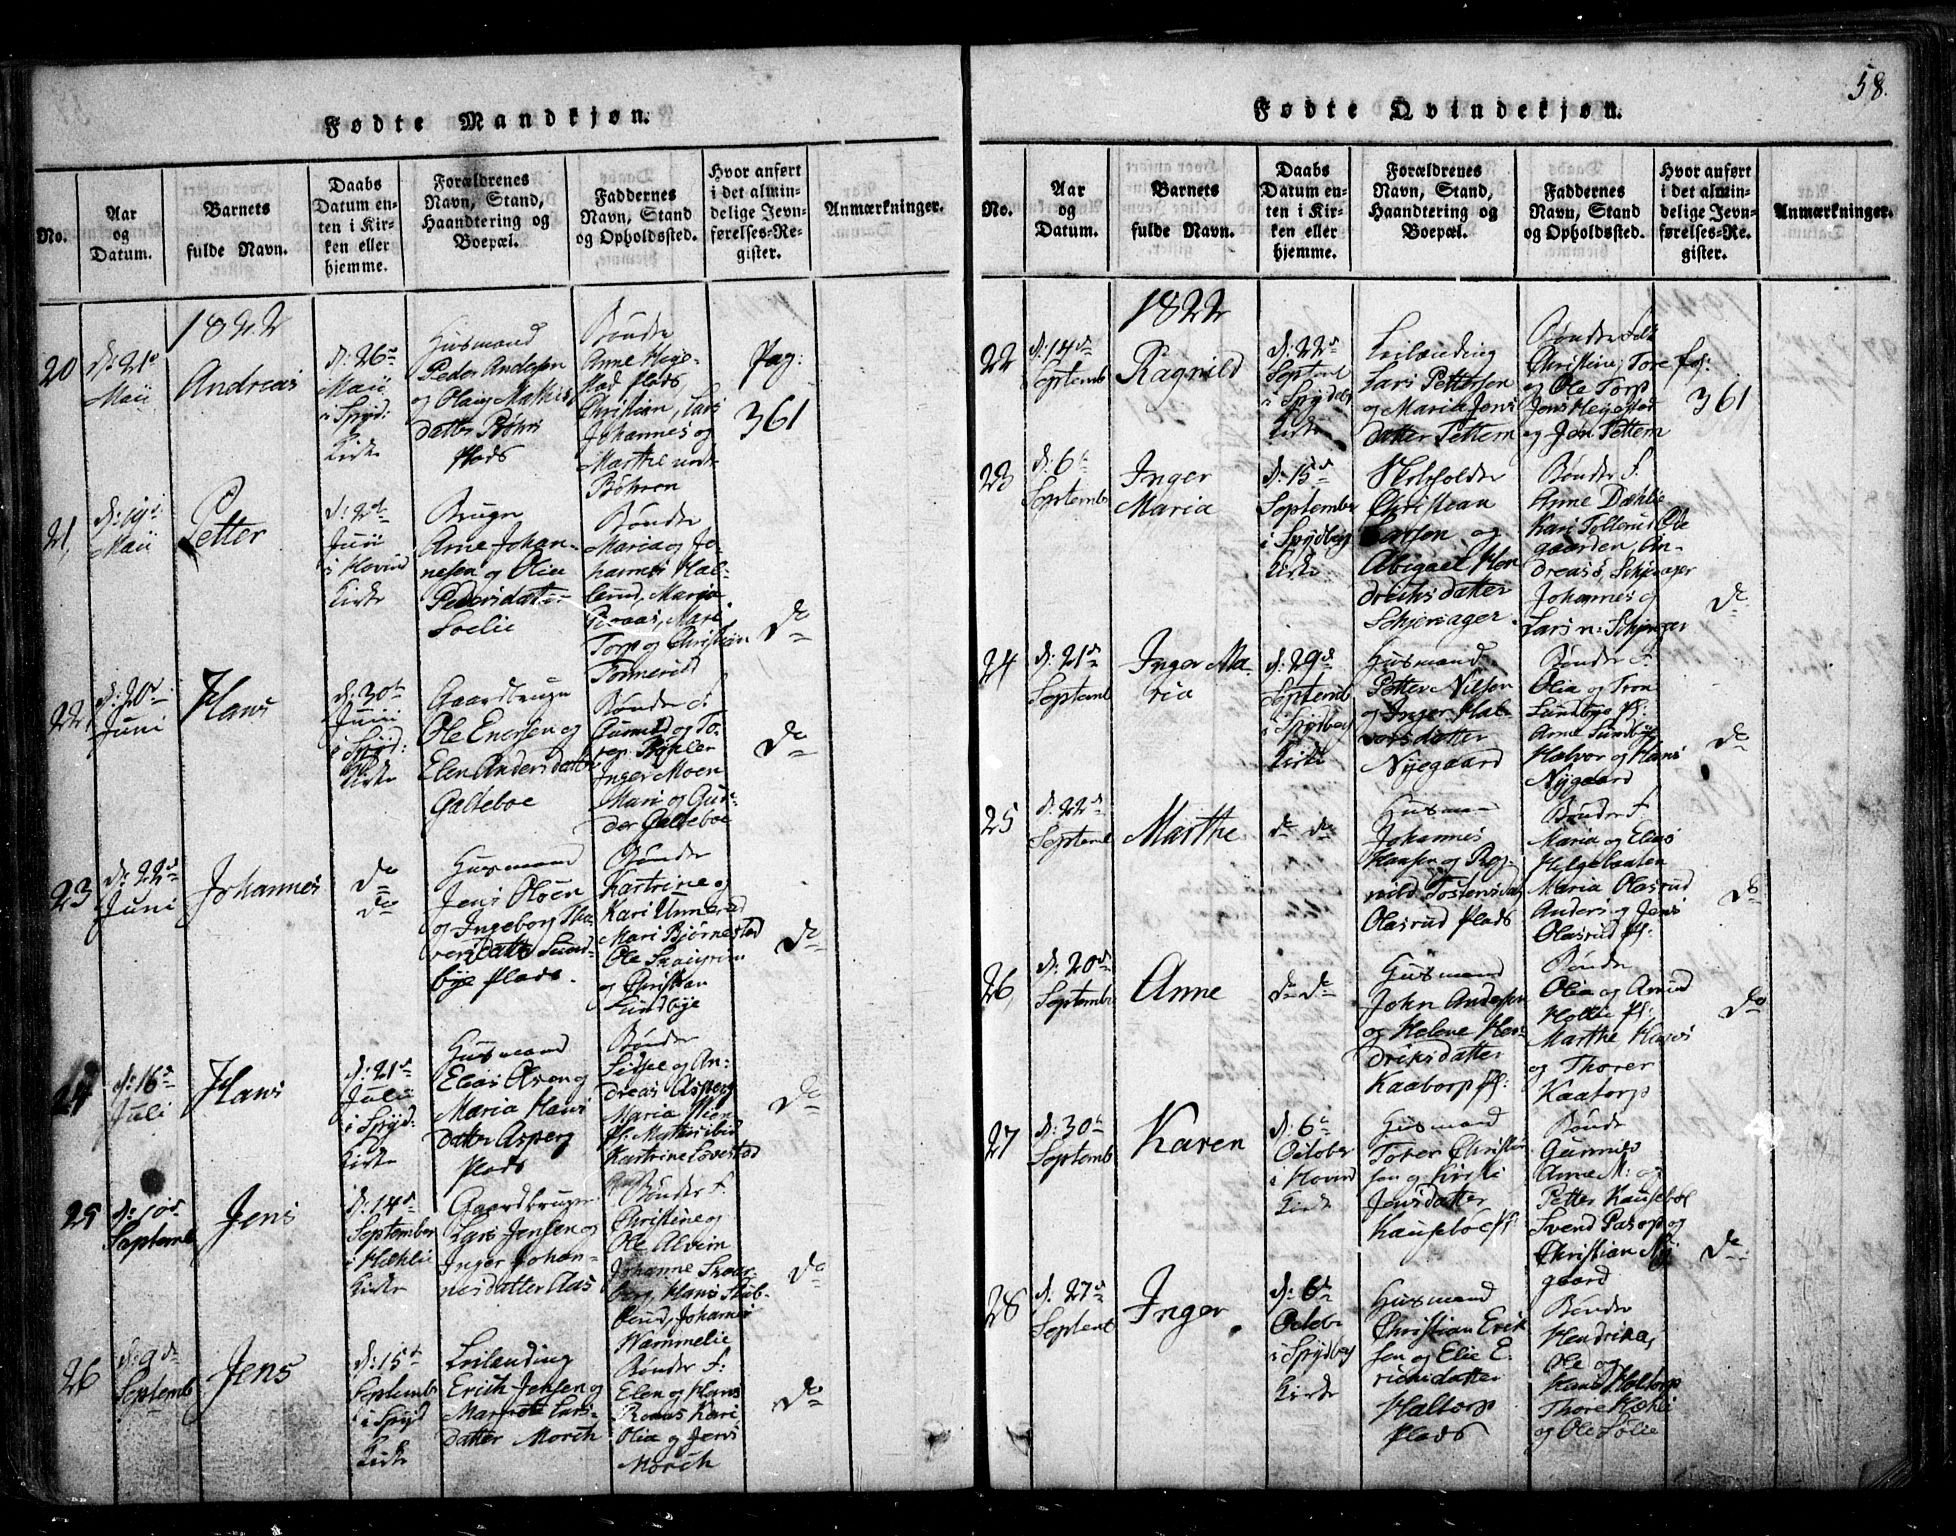 58.
Fødte Mandkjøn.
No.
Aar
og
Datum.
Barnets
fulde Navn.
Daabs
Datum en-
ten i Kir-
ken eller
hjemme.
Forældrenes
Navn, Stand,
Haandtering og
Boepæl.
Faddernes
Navn, Stand
og Opholdssted.
Hvor anført
i det almin-
delige Jevn-
førelses-Re-
gister.
Anmærkninger.
1822
20
d: 21de
Maii
Andreas
d: 26de
Maii
i Spyd:
Kirke
Husmand
Peder Andersen
og Olaug Mathis
datter Bøhns
Plads
Bønder
Anne
Plads
Christian, Lars
Johannes og
Marthe
Böhren
Pag:
361
21
d: 19de
Maii
Petter
Junii
i Hovind
Kirke
Bruger
Arne Johan-
nesen og Olia
Pedersdatter
Soelie
Bønder
Maria og Jo-
hannes
Maria
Mari
Torp og Christian
Tonnerud
do
22
d: 20de
Juni
Hans
d: 30te
Junii
i Spyd:
Kirke
Gaardbruger
Ole Enersen og
Elen Andersdatter
Galteboe
Bønder f:
Gunnild og To-
Inger Moen
Mari og Gun-
der Galteboe
do
23
d: 22de
Juni
Johannes
do
do
Husmand
Jens Olsen
og Ingeborg
datter Lund-
bye Plads.
Bønder
Kartrine og
Kari
Mari Bjørnestad
Ole
og Christian
Lundbye
do
24
d: 16de
Juli
Hans
d: 21de
Julii
i Spyd:
Kirke
Husmand
Elias Olsen og
Maria Hans
datter Asperg
Plads
Bønder
og An-
dreas Asperg
Maria Moen
Kartrine Lövestad
do
25
d: 10de
Septemb
Jens
d: 14de
September
i Hæhlie
Kirke
Gaardbruger
Lars Jensen og
Inger Johan-
nesdatter Aas
Bønder f:
Christine og
Ole Alvim
Johanne Svar-
berg, Hans
Johannes
Wammelie
do
26
d: 9de
Septemb
Jens
d: 15de
Septembr
i Spyd
Kirke
Leilænding
Erich Jensen og
Margrete Lars-
datter Morch
Bønder f:
Elen og Hans
Kari
Olia og Jens
Mörch
do
Fødte Qvindekjøn.
No.
Aar
og
Datum.
Barnets
fulde Navn.
Daabs
Datum en-
ten i Kir-
ken eller
hjemme.
Forældrenes
Navn, Stand,
Haandtering og
Boepæl.
Faddernes
Navn, Stand
og Opholdssted.
Hvor anført
i det almin-
delige Jevn-
førelses-Re-
gister.
Anmærkninger.
1822
22
d: 14de
Septemb
Ragnild
d: 22de
Septemb
i Spydeb
Kirke
Leilænding
Lars Pettersen
og Maria Jens
datter Pettem
Bønder
Christine, Tore
og Ole Torp
Jens
og Jen Pettem
361
23
d: 6te
Septemb
Inger
Maria
d: 15de
September
i Spydberg
Kirke
Skoleholder
Christian
Larsen og
Abigael Hen
drichsdatter
Schjeniager.
Bønder f:
Anne Dæhlie
Kari Tollerud Øde
gaarden, An-
dreas, Schjeniager
Johannes og
Lars n: Schjeniager
do
24
d: 21de
Septemb
Inger Ma
ria
d: 29de
Septemb
i Spydberg
Kirke
Husmand
Petter Nilsen
og Inger Hal-
vorsdatter
Nyegaard
Bønder f:
Olia og Tron
Lundbye Pl:
Arne Lundbye
Halvor og Hans
Nygaard
do
25
d: 22de
Septemb
Marthe
do do
Husman
Johannes
Hansen og Rag-
nild Tostensdat
Olasrud Plads
Bønder f:
Maria og Elias
Helgebaaten
Maria Olasrud
Anders og Jens
Olasrud Pl:
do
26
d: 20de
Septembr
Anne
do do
Husmand
John Andersen
og Helene Hen-
driksdatter
Kaatorp Pl:
Bønder
Olia og Amund
Höllie Pl:
Marthe Hans
og Thorer
Kaatorp
do
27
d: 30te
Septemb
Karen
d: 6te
October
i Hovind
Kirke
Husmand
Torer Christian
sen og Kirsti
Jensdatter
Kauseboe Pl:
Bønder
Gunnild
Anne M: og
Petter Kauseboe
Svend Pasop og
Christian Ny
gaard
do
28
d: 27de
Septemb
Inger
d: 6te
Octobr
i Spydberg
Kirke
Husmand
Christian Erik
sen og Elie E-
richsdatter
Haltorp
Plads
Bønder
Hendrika,
Ole og
Hans Holtorp
Thore Kæhli
og Ole Solie